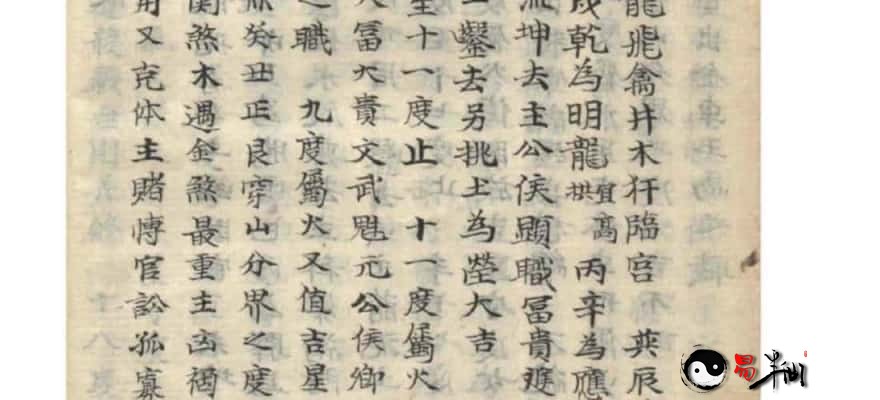 龍飛禽井木犴臨宮 英辰
戌乾為明龍拱宜高丙辛為應
坤去主公侯顯職冨貴
鑿去另挑土為塋大吉
至十一度止 十一度屬火
大冨大貴文武魁元公侯卿
之職 九度屬火又值吉星
癸丑正艮穿山分界之度
関煞木遇金煞最重主凶禍
又克体主賭愽官訟孤寡
易半仙